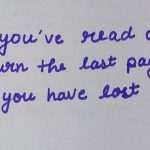 you've read a
turn the last pag
you have lost